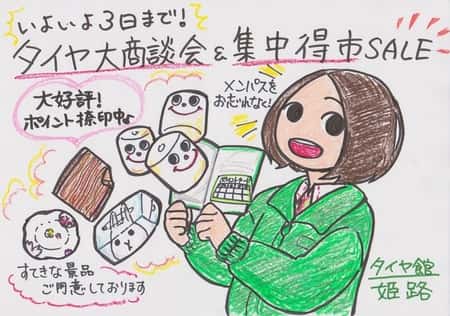 いよいよ3日まで!
タイヤ大商談会&集中得市SALE
大好評!
ポイント捺印中♪
メンバズを
おわすれなく!
すてきな景品
ご用意しております
タイヤ館
姫路